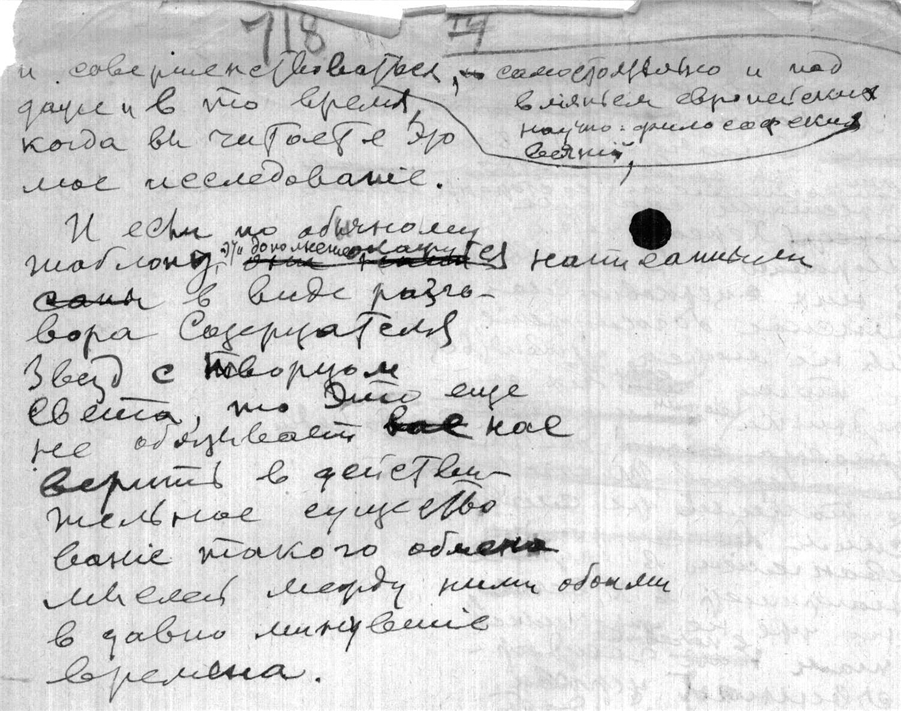 718 IV
и совершенствоваться, самостоятельно и под
влиянием европейских
научно-философских
веяний,
даже и в то время,
когда вы читаете это
мое исследованіе.
И если по обычному
шаблону, эти дополнения окажутся написанными
в виде разго-
вора Созерцателя
Звезд с творцом
света, то это еще
не обязывает нас
верить в действи-
тельное существо
ваніе такого обмена
мыслей между ними обоими
в давно минувшіе
времена.